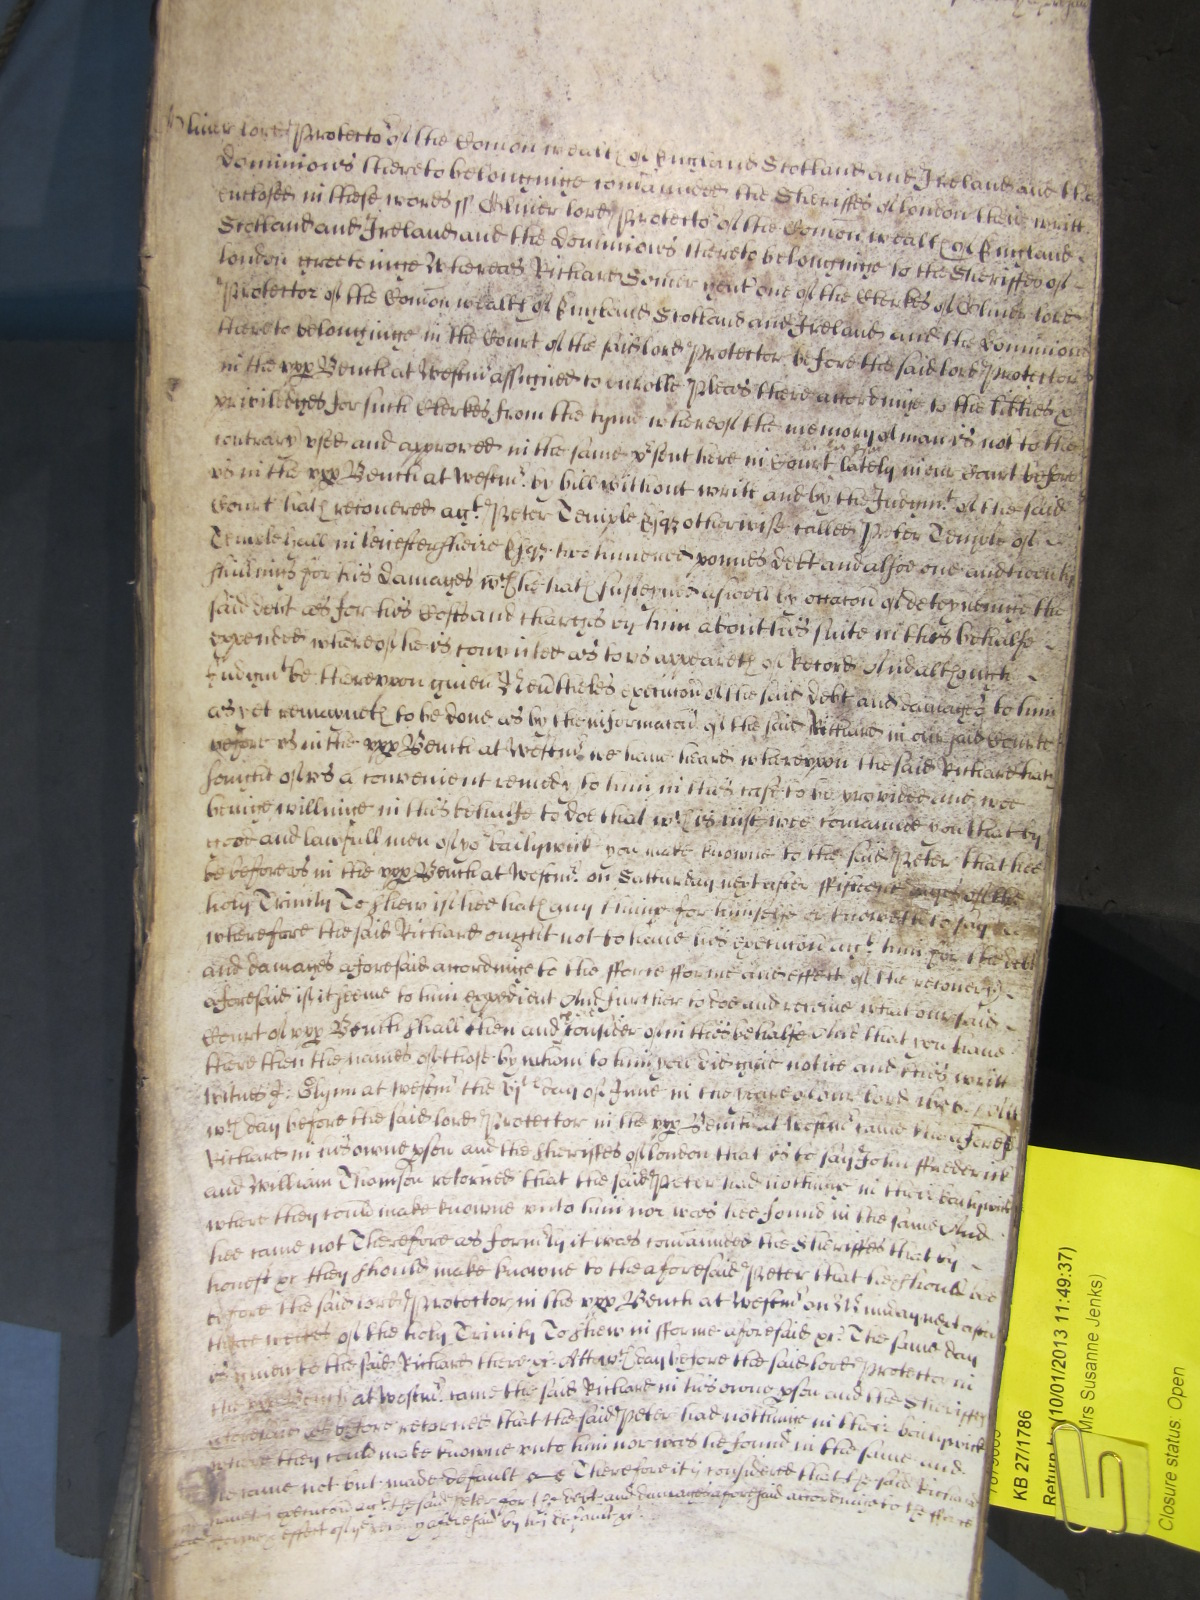 Oliver lord Protecto^r of the Comon wealth of England Scotland and Ireland and the
dominions thereto belonginge comanded the Sheriffes of london theire writt
enclosed in these words ss Oliver lord Protecto^r of the Comon wealth of England
Scotland and Ireland and the dominions thereto belonginge to the Sheriffes of
london greetinge Whereas Richard Somer gent one of the Clerkes of Oliver lord
Protector of the Comon wealth of England Scotland and Ireland and the dominions
thereto belonginge in the Court of the said lord Protector before the said lord Protector
in the vpp Bench at Westm^r assigned to enrolle Pleas there accordinge to the lib'ties &
priviledges for such Clerkes from the tyme whereof the memory of man is not to the
contrary vsed and approved in the same p'sent here in Court lately in our Court before
vs in the vpp Bench at Westm^r by bill without writt and by the Judgm^t of the said
Court hath recovered ag^t Peter Temple Esq^r otherwise called Peter Temple of
Temple hall in leicestersheire Esq^r two hundred pounds debt and alsoe one and twenty
shillings for his damages w^ch he hath susteyned aswell by occacon of deteyneinge the
said debt as for his Costs and charges by him about his suite in this behalfe
expended whereof he is convicted as to vs appeareth of Record And although
Judgm^t be therevpon given Nev'theles execucon of the said debt and damages to him
as yet remayneth to be done as by the informacon of the said Richard in our said Courte
before vs in the vpp Bench at Westm^r we have heard wherevpon the said Richard hath
sought of vs a convenient remedy to him in this case to be provided and wee
beinge willinge in this behalfe to doe that w^ch is iust wee comannd you that by
good and lawfull men of yo^r bailywick you make knowne to the said Peter that hee
be before vs in the vpp Bench at Westm^r on Satturday next after ffifteene dayes of the
holy Trinity To shew if hee hath any thinge for himselfe or knoweth to say
wherefore the said Richard ought not to have his execucon ag^t him for the debt
and damages aforesaid accordinge to the fforce fforme and effect of the recovery
aforesaid if it seeme to him expedient And further to doe and receive what our said
Court of vpp Bench shall then and there consider of in this behalfe And that you have
there then the names of those by whom to him you did give notice and this writt
witnes J: Glynn at westm^r the vj^th day of June in the yeare of our lord 1656 Att
w^ch day before the said lord Protector in the vpp Bench at Westm^r came the aforesd
Richard in his owne p'son and the Sheriffes of london that is to say John ffrederick
and William Thomson retorned that the said Peter had nothinge in their bailywick
where they could make knowne vnto him nor was hee found in the same And
hee came not Therefore as form'ly it was comanded the Sheriffes that by
honest &c they should make knowne to the aforesaid Peter that he should bee
before the said lord Protector in the vpp Bench at Westm^r on Munday next after
three weekes of the holy Trinity To shew in fforme aforesaid &c The same day
is given to the said Richard there &c Att w^ch day before the said lord Protector in
the vpp Bench at Westm^r came the said Richard in his owne p'son and the Sheriffes
as before retorned that the said Peter had nothinge in their bailywick
where they could make knowne vnto him nor was he found in the same and
he came not but made default Therefore it is considered that the said Richard
have execucon ag^t the said Peter for the debt and damages aforesaid accordinge to the fforce
fforme & effect of the recovery aforesaid by his default &c
KB 27/1786
Return by (10/01/2013 11:49:37)
Mrs Susanne Jenks)
Closure status: Open